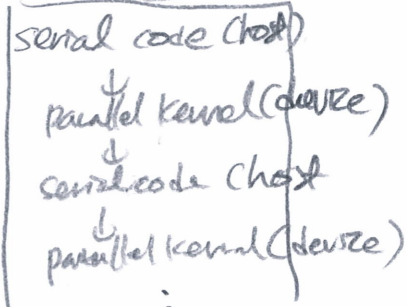 serial code (host)
↓
parallel kernel (device)
↓
serial code (host
↓
parallel kernel (device)